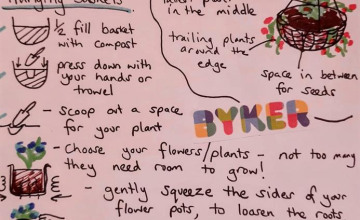 Hanging Baskets
in the middle
trailing plants
around the
edge
space in between
for seeds
½ fill basket
with compost
press down with
your hands or
trowel
- scoop out a space
for your plant
BYKER
- Choose your flowers/plants - not too many
they need room to grow!
- gently squeeze the sides of your
flower pots, to loosen the roots